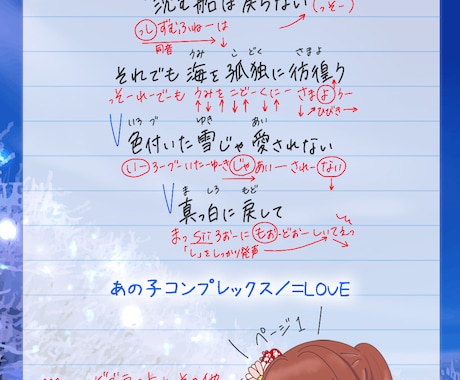 沈む船は戻らない(っそー)
っしずむふねーは
同音
うみ こどく さまよ
それでも海を孤独に彷徨う
っそーれーでも うみをこどーくにー さまようー
ひびき
いろづ ゆき あい
色付いた雪じゃ愛されない
いーろーづーいたーゆーきじゃあいーされーない
ま しろ もど
真っ白に戻して
まっSiiろぉーにもぉーどぉーしいてえっ
「し」をしっかり発声
あの子コンプレックス/=LOVE
ページ1